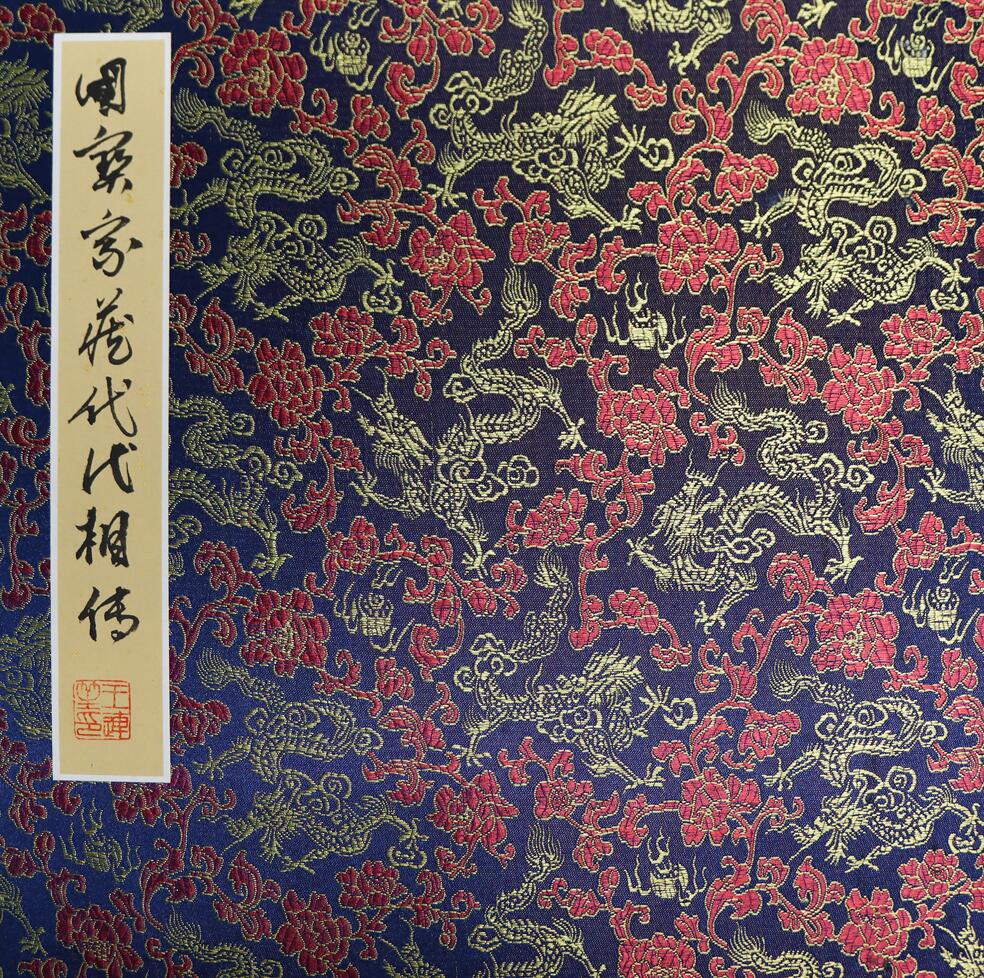 國寶家藏代代相傳